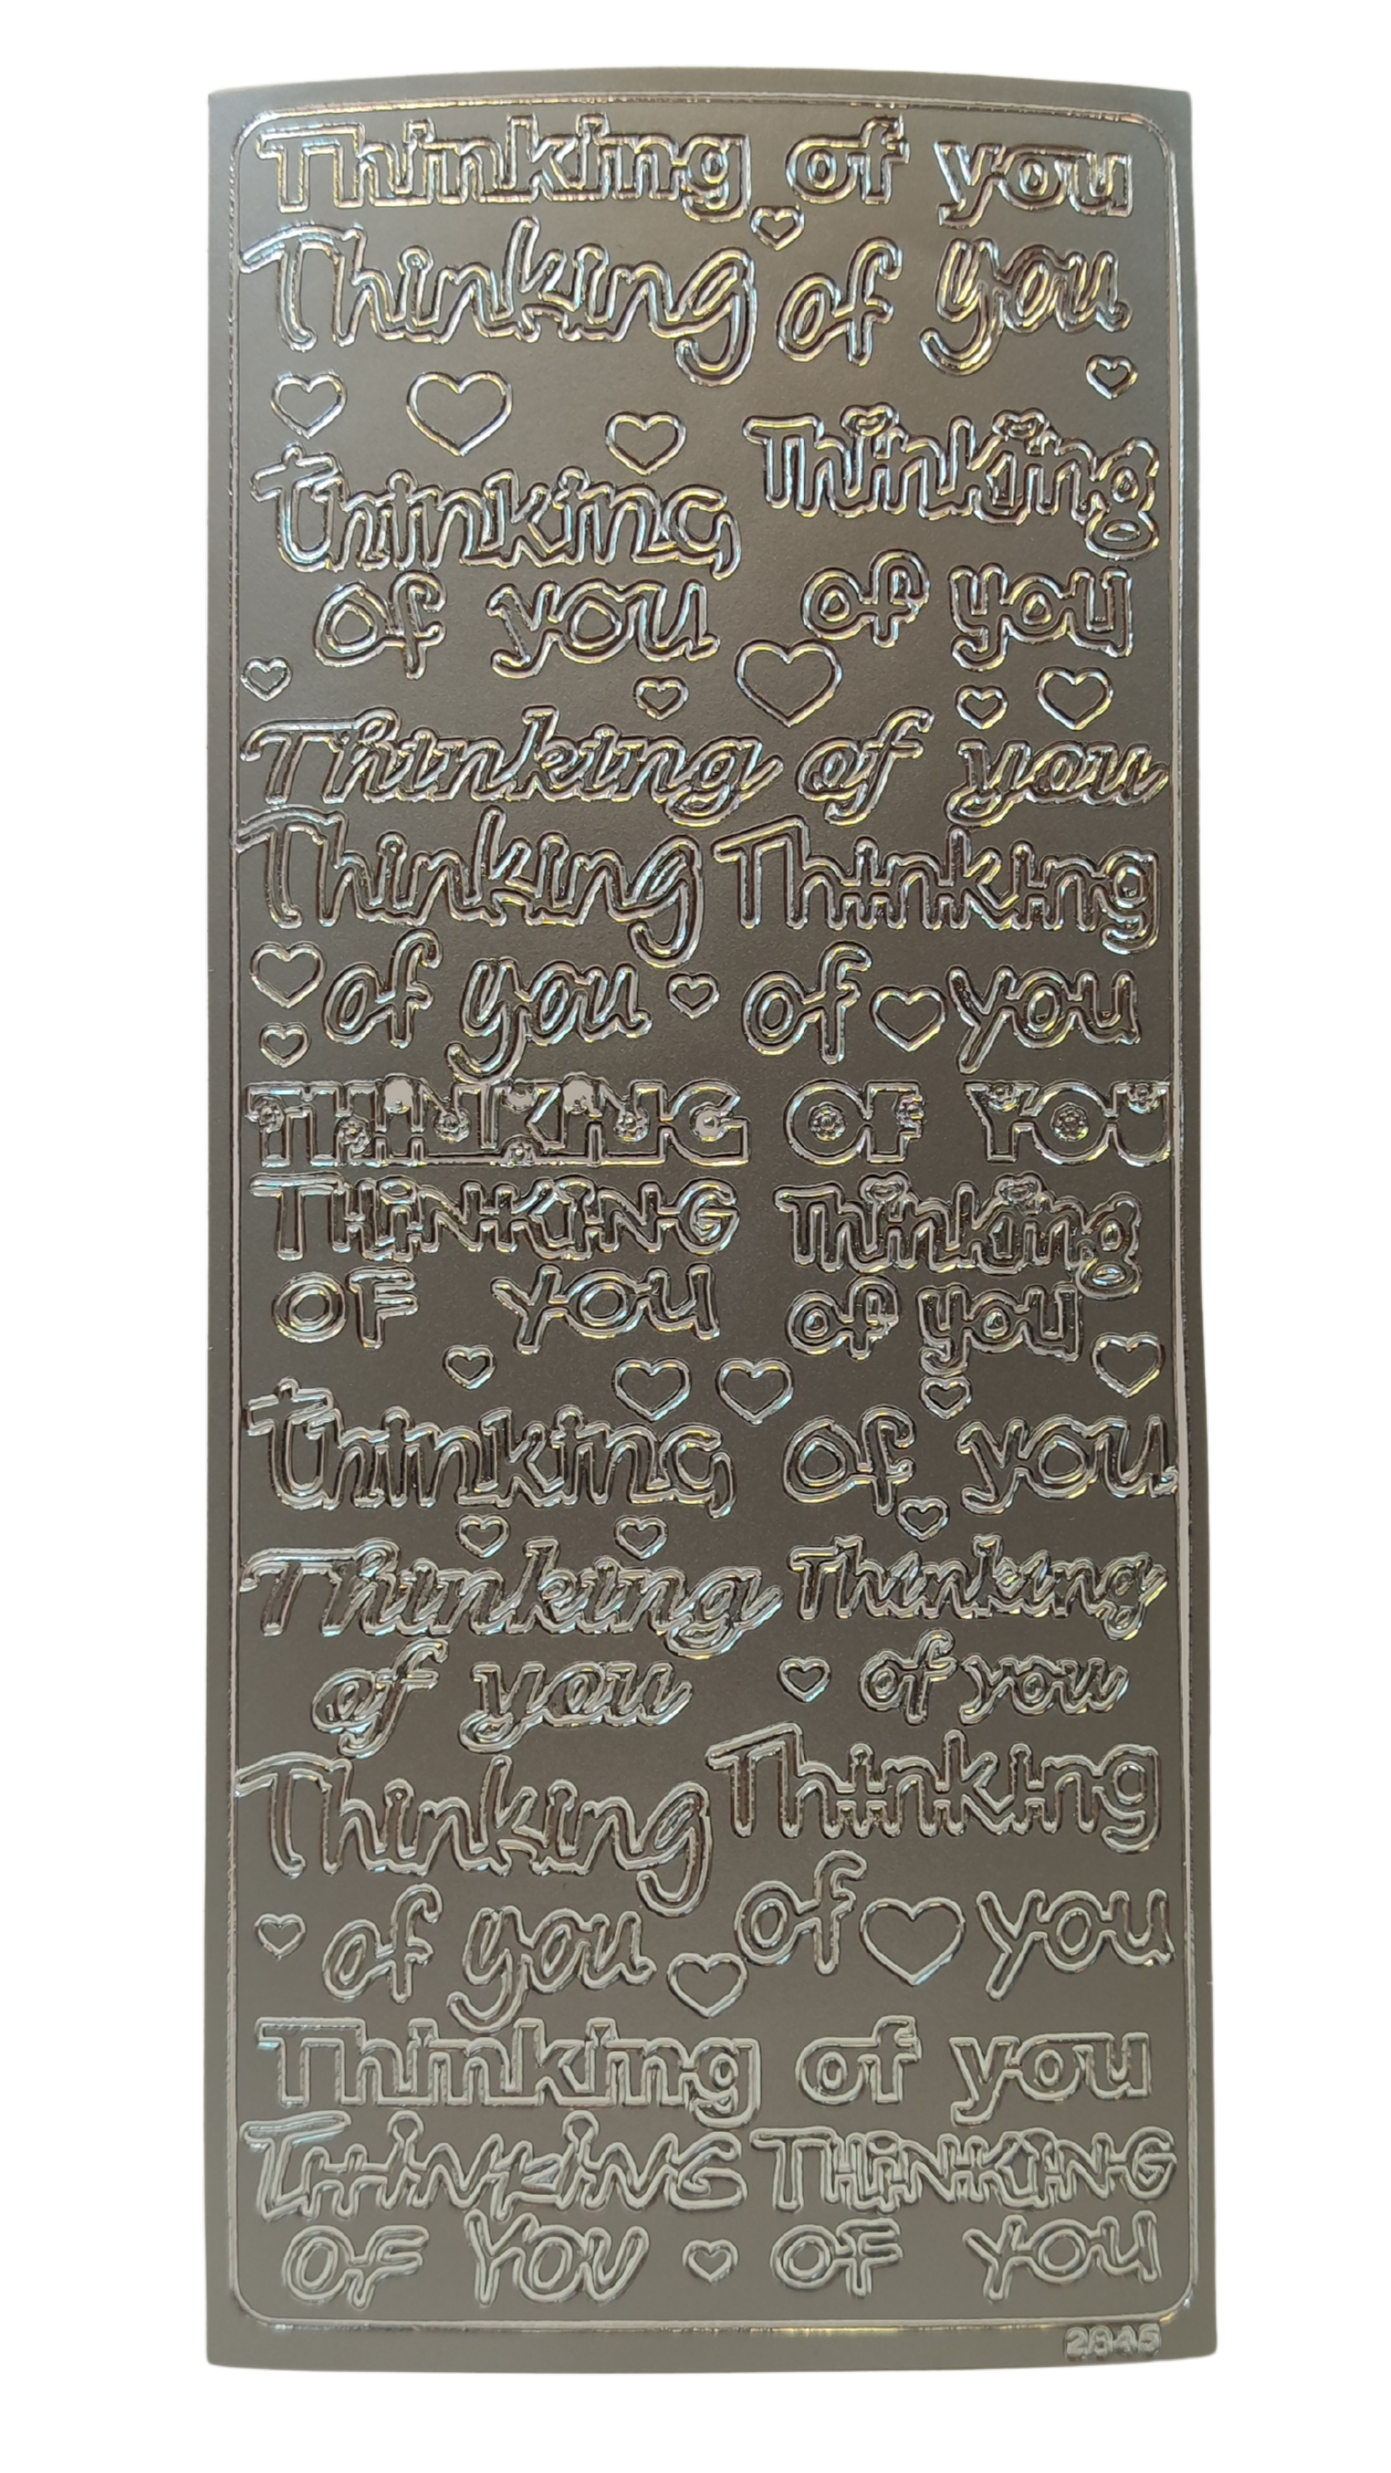 Thinking of you
Thinking of you
Thinking
of you
thinking
of you
Thinking of you
Thinking
of you
Thinking
of you
THINKING OF YOU
THiNKiNG
OF YOU
Thinking
of you
thinking of you
Thinking
of you
Thinking
of you
Thinking
of you
Thinking
of you
Thinking of you
THiNKiNG
OF YOU
THiNKiNG
OF YOU
2845